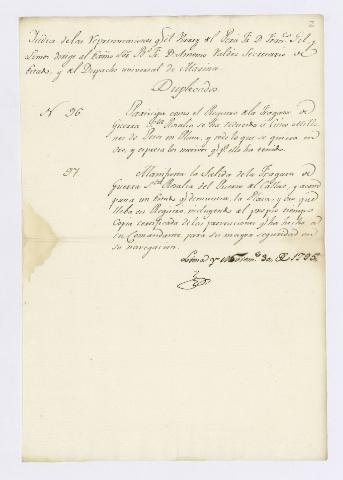 2
Indice de las representaciones q.e el Virrey del Perú Fr. D. Fran.co Gil
Lemos dirige al Exmo Sor B.o Fr. D. Antonio Valdes Secretario de
Estado, y del Despacho universal de Marina.
Duplicados
N 96 Participa como el Registro de la Fragata de
Guerra S.ta Rosalia se ha reducido a cinco millo
nes de Pesos en Plata, y todo lo que se quiera en
Oro, y expresa los motivos q.e p.a ello ha tenido.
97. Manifiesta la Salida de la Fragata de
Guerra S.ta Rosalia del Puerto del Callao, y acom
paña un Estado q.e demuestra la Plata, y Oro que
lleba en Registro, incluyendo al propio tiempo
Copia certificada de las prevenciones q.e ha hecho a
su Comandante para su mayor seguridad en
su navegacion.
Lima y 30, de 1795.